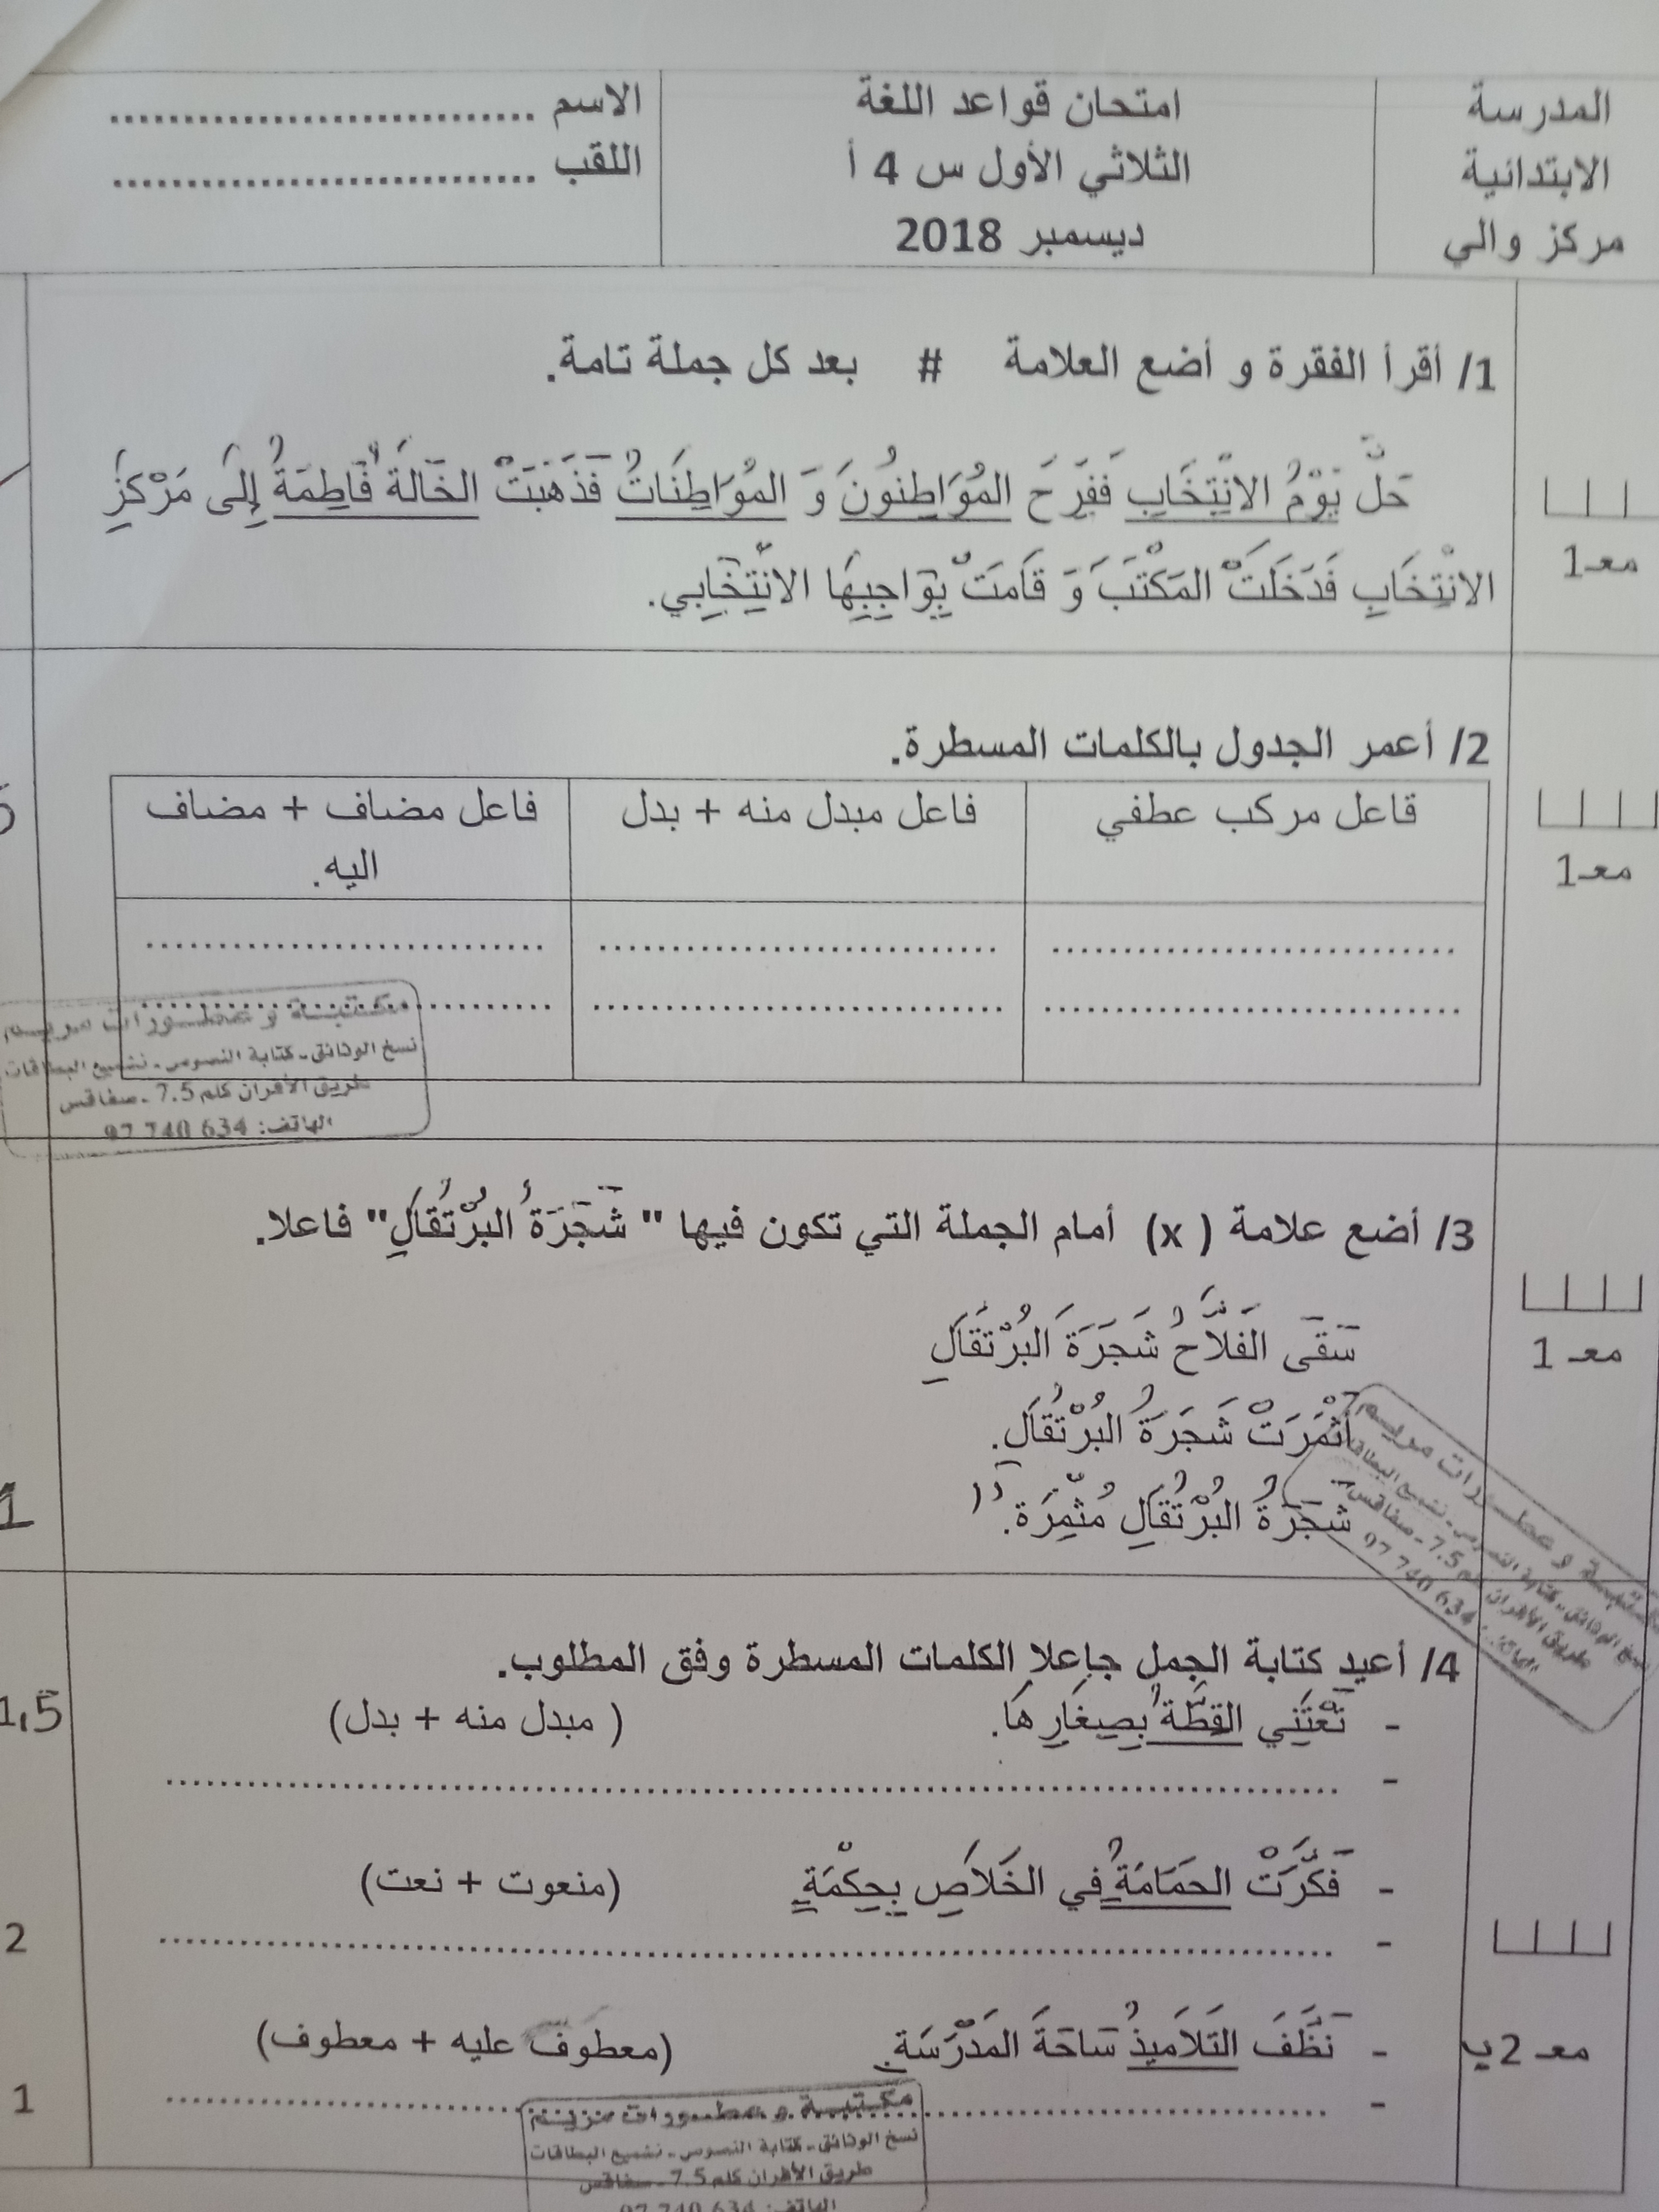 المدرسة
الابتدائية
مركز والي
امتحان قواعد اللغة
الثلاثي الأول س 4 أ
ديسمبر 2018
الاسم ..............................
اللقب ..............................
1/ أقرأ الفقرة و أضع العلامة # بعد كل جملة تامة.
حَلَّ يَوْمُ الانْتِخَابِ فَفَرِحَ المُوَاطِنُونَ وَ المُوَاطِنَاتُ فَذَهَبَتْ الخَالَةُ فَاطِمَةُ إِلَى مَرْكَزِ
الانْتِخَابِ فَدَخَلَتْ المَكْتَبَ وَ قَامَتْ بِوَاجِبِهَا الانْتِخَابِي.
معـ1
2/ أعمر الجدول بالكلمات المسطرة.
فاعل مركب عطفي
فاعل مبدل منه + بدل
فاعل مضاف + مضاف
اليه.
معـ1
مكتبة و عطورات مريم
نسخ الوثائق - كتابة النصوص - تشميع البطاقات
طريق الأفران كلم 7.5 - صفاقس
الهاتف: 634 740 97
3/ أضع علامة ( x) أمام الجملة التي تكون فيها " شَجَرَةُ البُرْتُقَالِ" فاعلا.
سَقَى الفَلاَّحُ شَجَرَةَ البُرْتُقَالِ
أَثْمَرَتْ شَجَرَةُ البُرْتُقَالِ.
شَجَرَةُ البُرْتُقَالِ مُثْمِرَة.
معـ 1
1
عطورات مريم
تشميع البطاقات
7.5 - صفاقس
634 740 97
4/ أعيد كتابة الجمل جاعلا الكلمات المسطرة وفق المطلوب.
- تَعْتَنِي القِطَّةُ بِصِغَارِهَا. ( مبدل منه + بدل)
1,5
- ..............................
- فَكَّرَتْ الحَمَامَةُ فِي الخَلاَصِ بِحِكْمَةٍ (منعوت + نعت)
- ..............................
2
- نَظَّفَ التَلاَمِيذُ سَاحَةَ المَدْرَسَةِ. (معطوف عليه + معطوف)
معـ 2ب
- ..............................
1
مكتبة و عطورات مريم
نسخ الوثائق - كتابة النصوص - تشميع البطاقات
طريق الأفران كلم 7.5 - صفاقس
الهاتف: 634 740 97